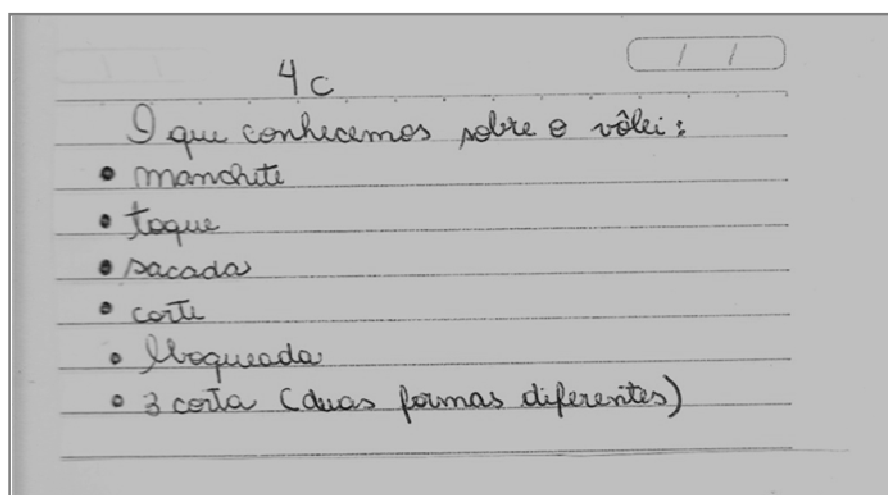 / /
4 c
O que conhecemos sobre o vôlei:
• manchete
• toque
• sacada
• corte
• bloqueada
• 3 corta (duas formas diferentes)